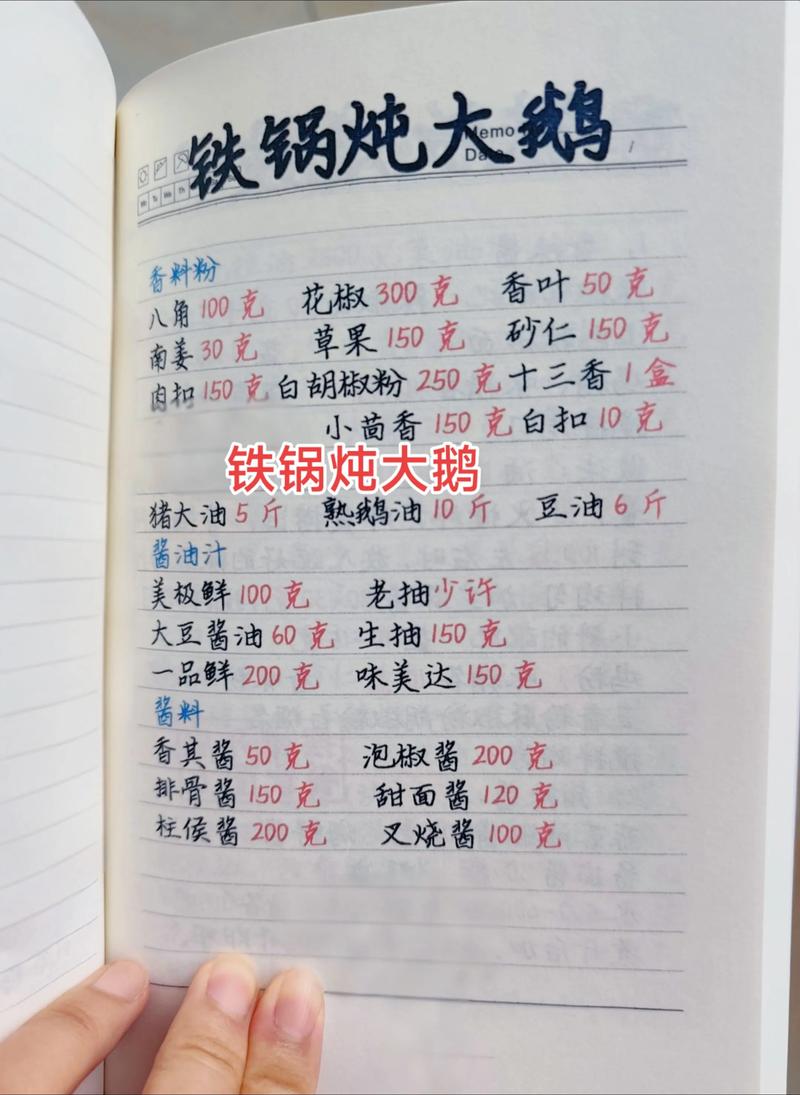 铁锅炖大鹅
Memo
Date
香料粉
八角 100 克 花椒 300 克 香叶 50 克
南姜 30 克 草果 150 克 砂仁 150 克
肉扣 150 克 白胡椒粉 250 克 十三香 1 盒
小茴香 150 克 白扣 10 克
铁锅炖大鹅
猪大油 5 斤 熟鹅油 10 斤 豆油 6 斤
酱油汁
美极鲜 100 克 老抽少许
大豆酱油 60 克 生抽 150 克
一品鲜 200 克 味美达 150 克
酱料
香其酱 50 克 泡椒酱 200 克
排骨酱 150 克 甜面酱 120 克
柱侯酱 200 克 叉烧酱 100 克